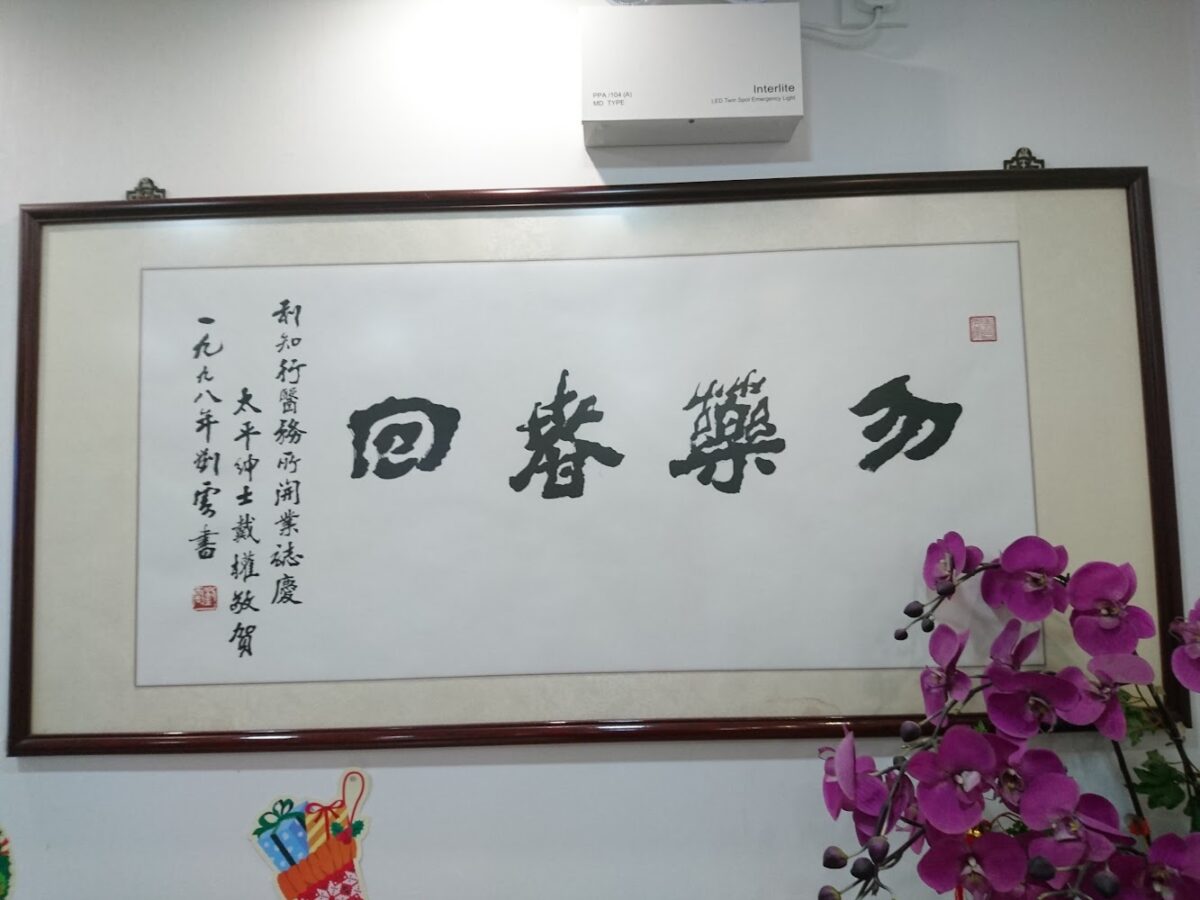 Interlite
LED Twin Spot Emergency Light
PPA /104 (A)
MD TYPE
勿藥春回
利知行醫務所開業誌慶
太平紳士戴權敬賀
一九九八年劉雲書